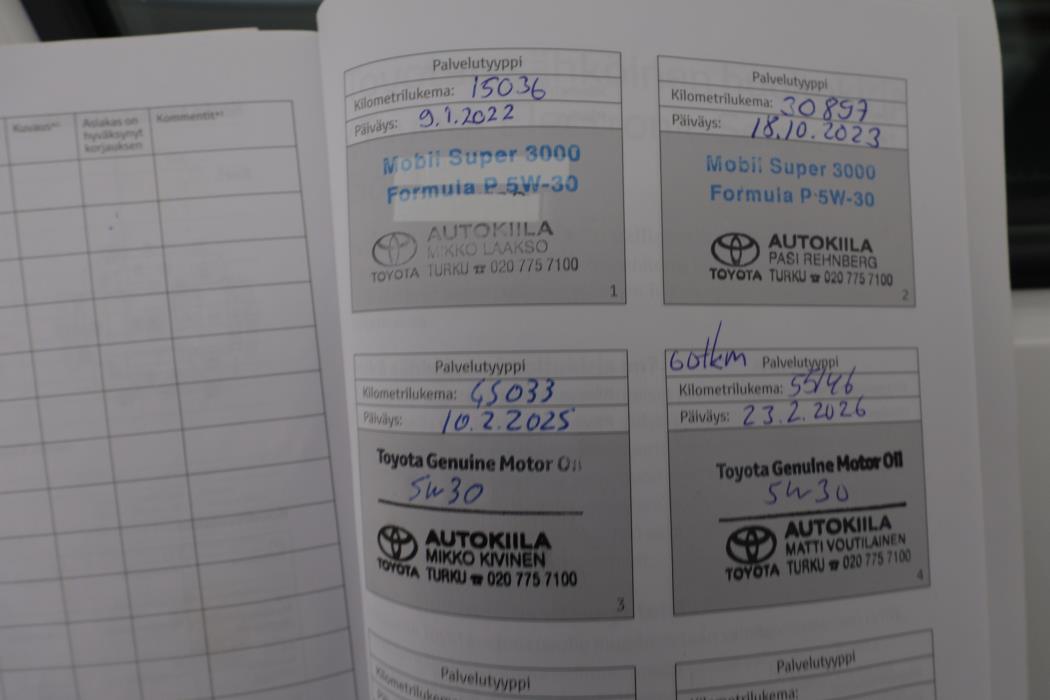 Kuvaus**
Asiakas on
hyväksynyt
korjauksen
Kommentit**
Palvelutyyppi
Kilometrilukema: 15036
Päiväys: 9.1.2022
Mobil Super 3000
Formula P 5W-30
AUTOKIILA
MIKKO LAAKSO
TOYOTA TURKU ☎ 020 775 7100
1
Palvelutyyppi
Kilometrilukema: 30897
Päiväys: 18.10.2023
Mobil Super 3000
Formula P 5W-30
AUTOKIILA
PASI REHNBERG
TOYOTA TURKU ☎ 020 775 7100
2
Palvelutyyppi
Kilometrilukema: 45033
Päiväys: 10.2.2025
Toyota Genuine Motor Oil
5W30
AUTOKIILA
MIKKO KIVINEN
TOYOTA TURKU ☎ 020 775 7100
3
60tkm Palvelutyyppi
Kilometrilukema: 55146
Päiväys: 23.2.2026
Toyota Genuine Motor Oil
5W30
AUTOKIILA
MATTI VOUTILAINEN
TOYOTA TURKU ☎ 020 775 7100
4
Palvelutyyppi
Kilometrilukema:
Palvelutyyppi
Kilometrilukema: